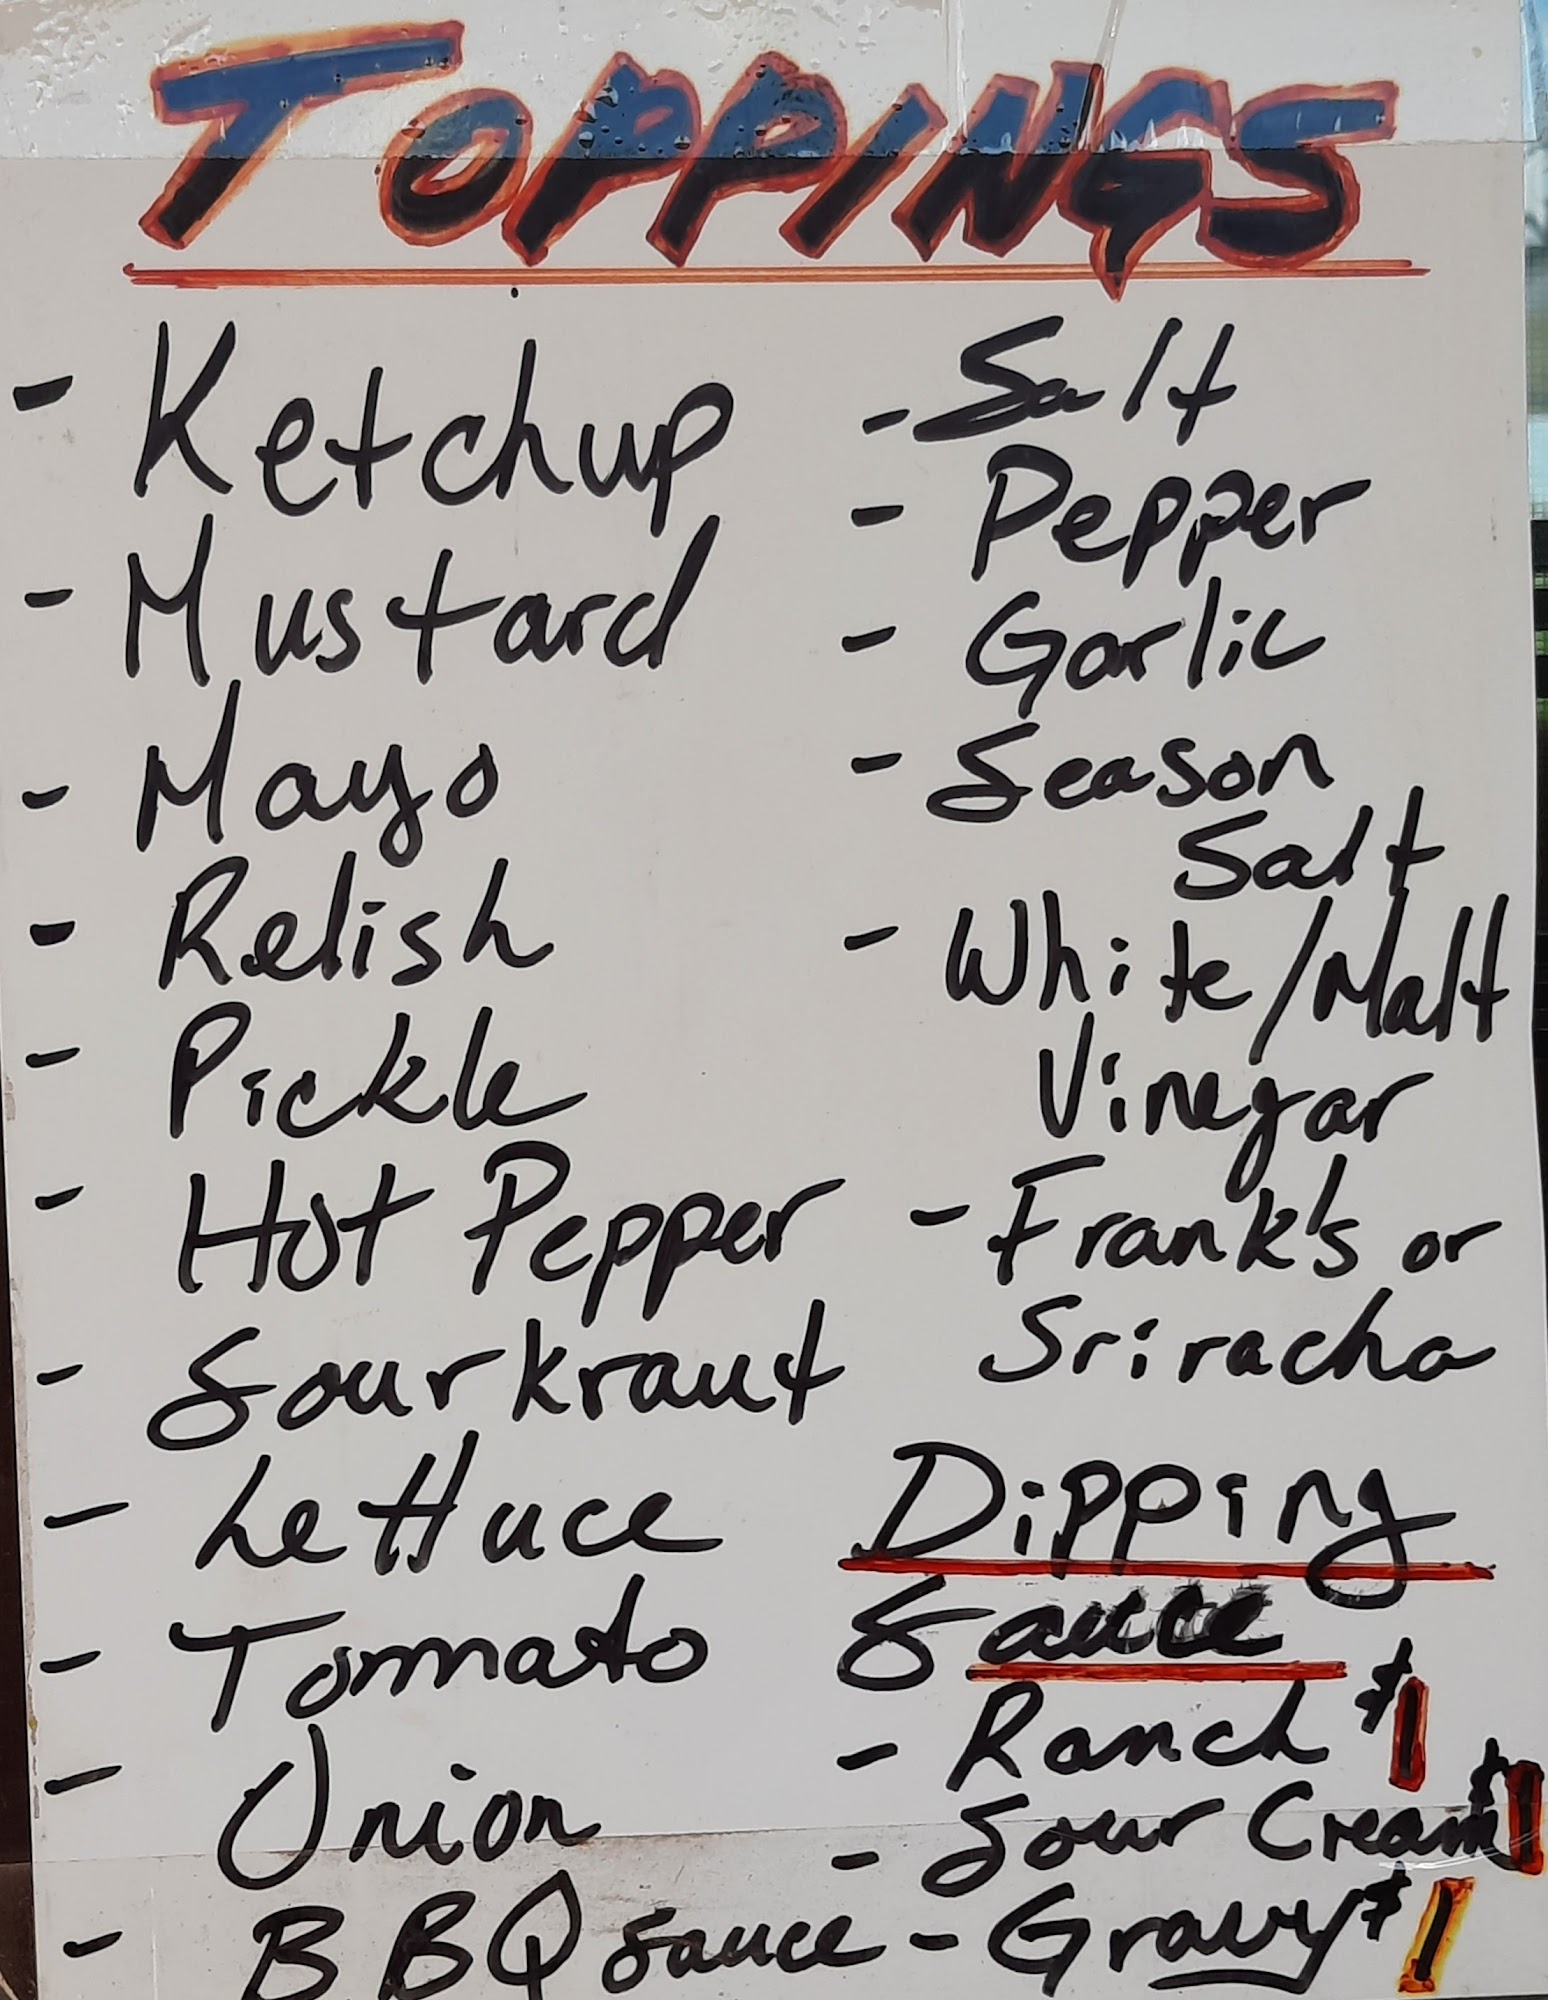 TOPPINGS
- Ketchup
- Mustard
- Mayo
- Relish
- Pickle
- Hot Pepper
- Sourkraut
- Lettuce
- Tomato
- Onion
- BBQ sauce
- Salt
- Pepper
- Garlic
- Season
Salt
- White/Malt
Vinegar
- Frank's or
Sriracha
Dipping
Sauce
- Ranch $1
- Sour Cream $1
- Gravy $1